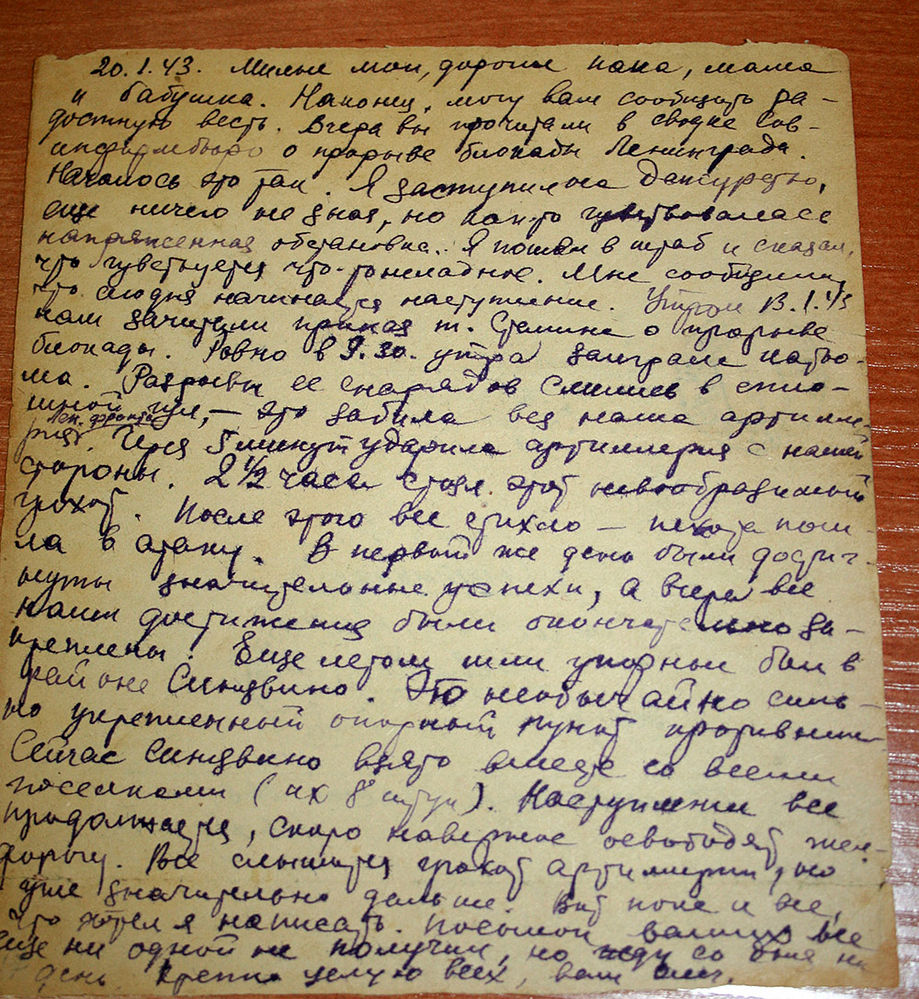 20.1.43. Милые мои, дорогие папа, мама
и бабушка. Наконец, могу вам сообщить ра-
достную весть. Вчера вы прочитали в сводке Сов-
информбюро о прорыве блокады Ленинграда.
Началось это так. Я заступил на дежурство,
еще ничего не зная, но как-то чувствовалась
напряженная обстановка. Я пошел в штаб и сказал,
что чувствуется что-то неладное. Мне сообщили,
что сегодня начинается наступление. Утром 13.1.43
нам зачитали приказ т. Сталина о прорыве
блокады. Ровно в 9.30. утра заиграла катю-
ша. Разрывы ее снарядов слились в спло-
шной гул, – это забила вся наша артилле-
рия Лен. фронта. Через 5 минут ударила артиллерия с нашей
стороны. 2 1/2 часа стоял этот невообразимый
грохот. После этого все стихло – пехота пош-
ла в атаку. В первый же день были достиг-
нуты значительные успехи, а вчера все
наши достижения были окончательно за-
креплены. Еще летом шли упорные бои в
районе Синявино. Это необычайно силь-
но укрепленный опорный пункт противника
Сейчас Синявино взято вместе со всеми
поселками (их 8 штук). Наступление все
продолжается, скоро наверное освободят жел.
дорогу. Все слышится грохот артиллерии, но
уже значительно дальше. Вот пока и все,
что хотел я написать. Писем от ваших все
еще ни одной не получил, но жду со дня на
день. Крепко целую всех, ваш